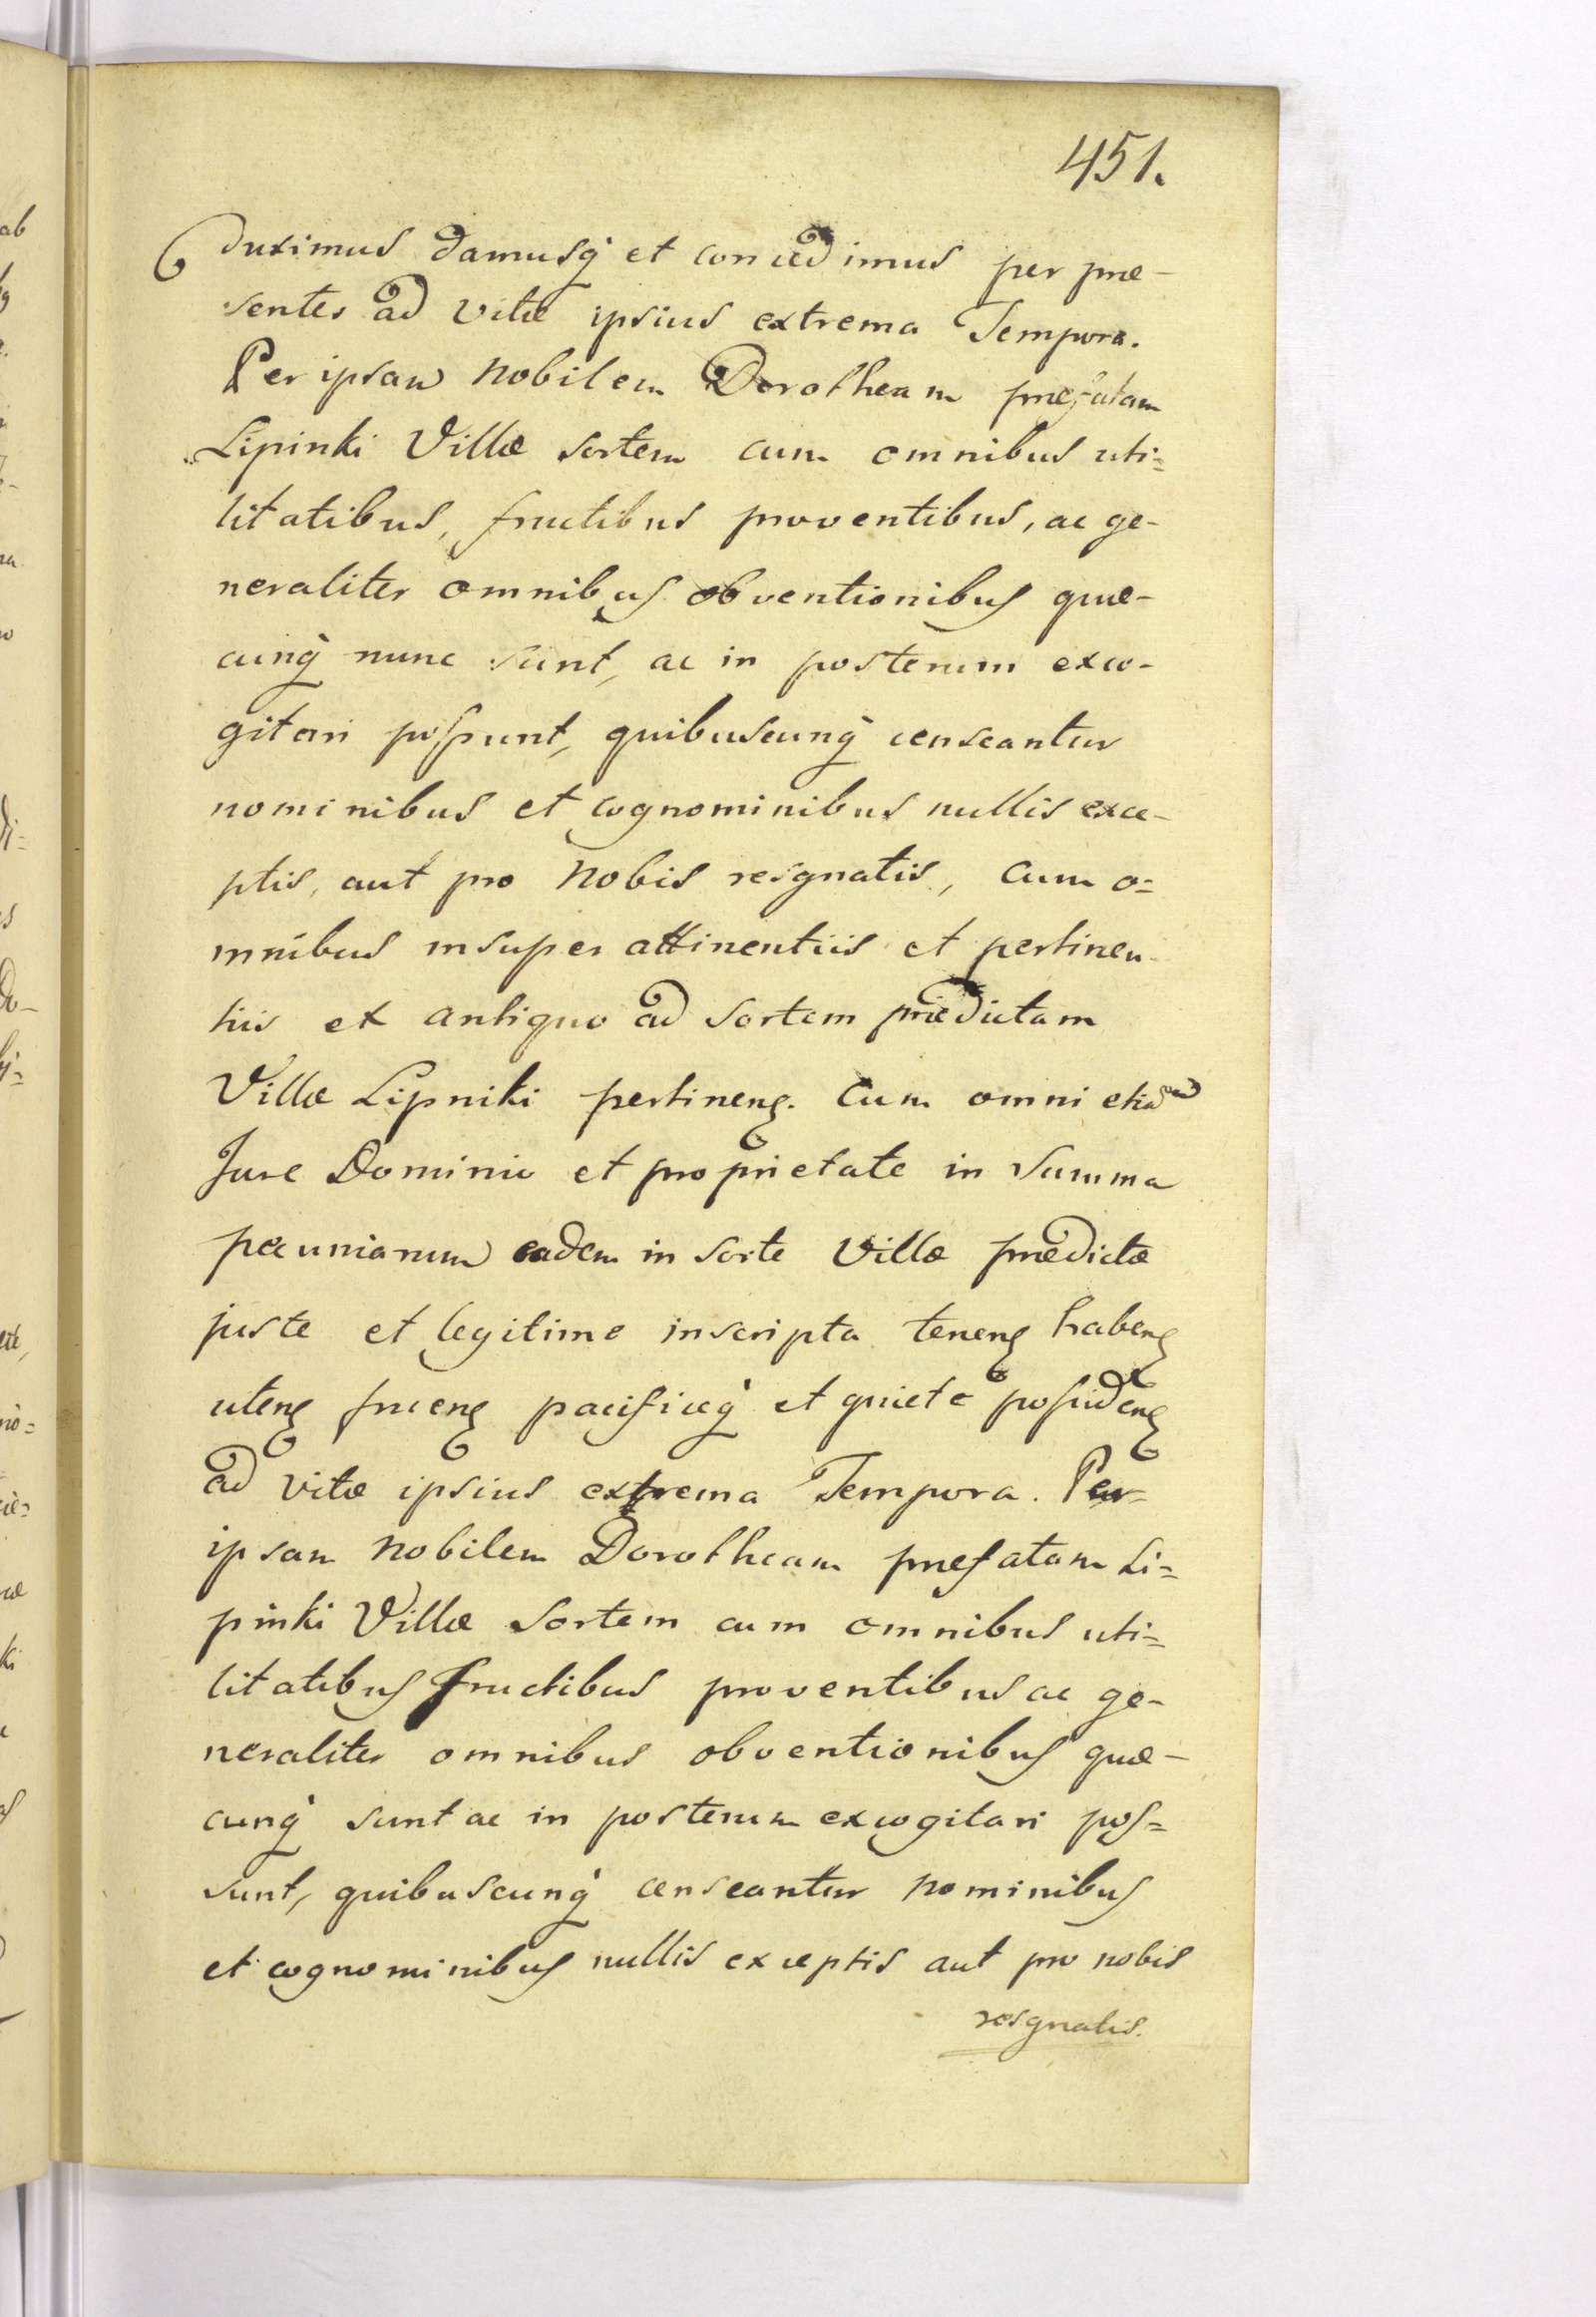 451.
duximus damusq̀ et concedimus per præ-
sentes ad vitæ ipsius extrema Tempora.
Per ipsam Nobilem Dorotheam præfatam
Lipinki Villæ sortem cum omnibus uti=
litatibus, fructibus proventibus, ac ge-
neraliter omnibus obventionibus quæ-
cunq̀ nunc sunt, ac in posterum exco-
gitari possunt, quibuscunq̀ censeantur
nominibus et cognominibus nullis exce-
ptis, aut pro Nobis resgnatis, cum o=
mnibus insuper attinentiis et pertinen-
tiis ex antiquo ad sortem prædictam
Villæ Lipniki pertineng. Cum omni etiam
Jure Dominio et proprietate in Summa
pecuniarum eadem in sorte Villæ prædictæ
juste et legitime inscripta teneng habeng
uteng frueng pacificeq̀ et quiete possideng
ad vitæ ipsius extrema Tempora. Per
ipsam Nobilem Dorotheam præfatam Li=
pinki Villæ Sortem cum omnibus uti=
litatibus fructibus proventibus ac ge-
neraliter omnibus obventionibus quæ-
cunq̀ sunt ac in posterum excogitari pos=
sunt, quibuscunq̀ censeantur Nominibus
et cognominibus nullis exceptis aut pro nobis
resgnatis.